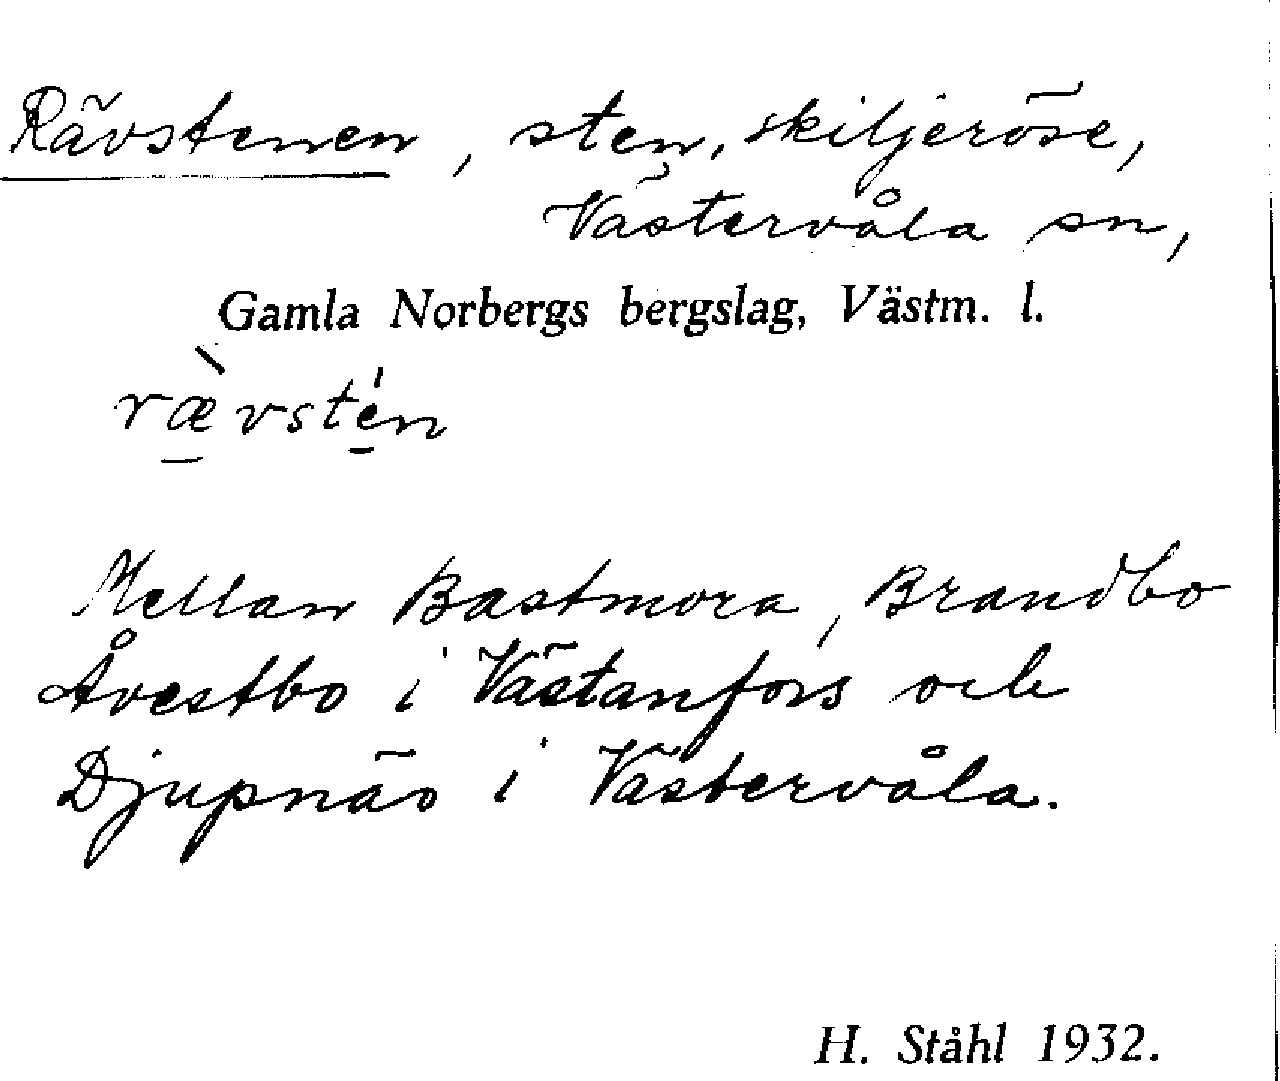 Rävstenen, sten, skiljeröse,
Västervåla sn,
Gamla Norbergs bergslag, Västm. l.
ræ̀vstén
Mellan Bastmora, Brandbo
Åvestbo i Västanfors och
Djupnäs i Västervåla.
H. Ståhl 1932.